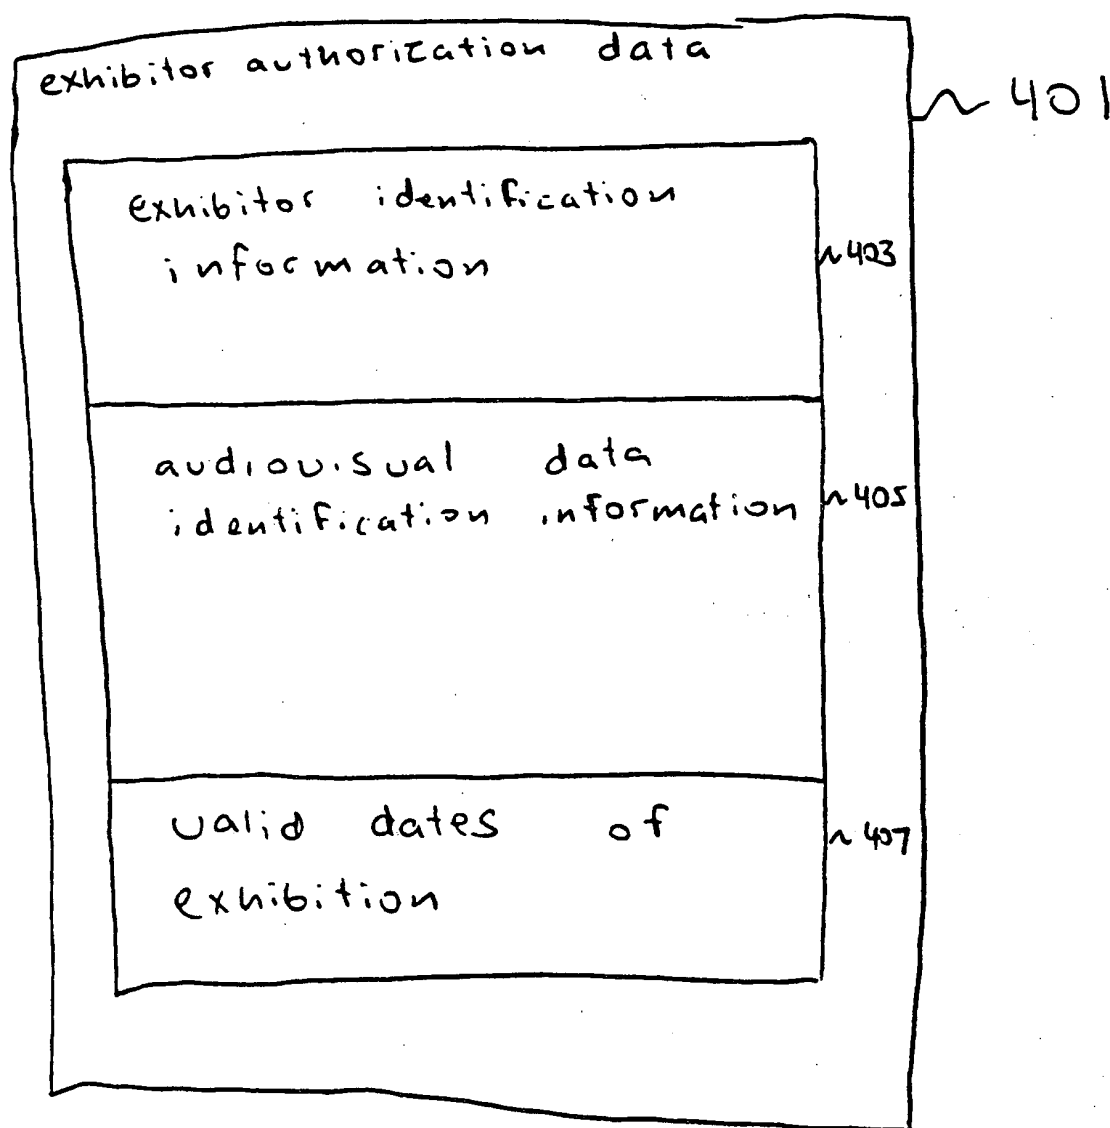 exhibitor authorization data
~ 401
exhibitor identification
information
~403
audiovisual data
identification information
~405
valid dates of
exhibition
~407